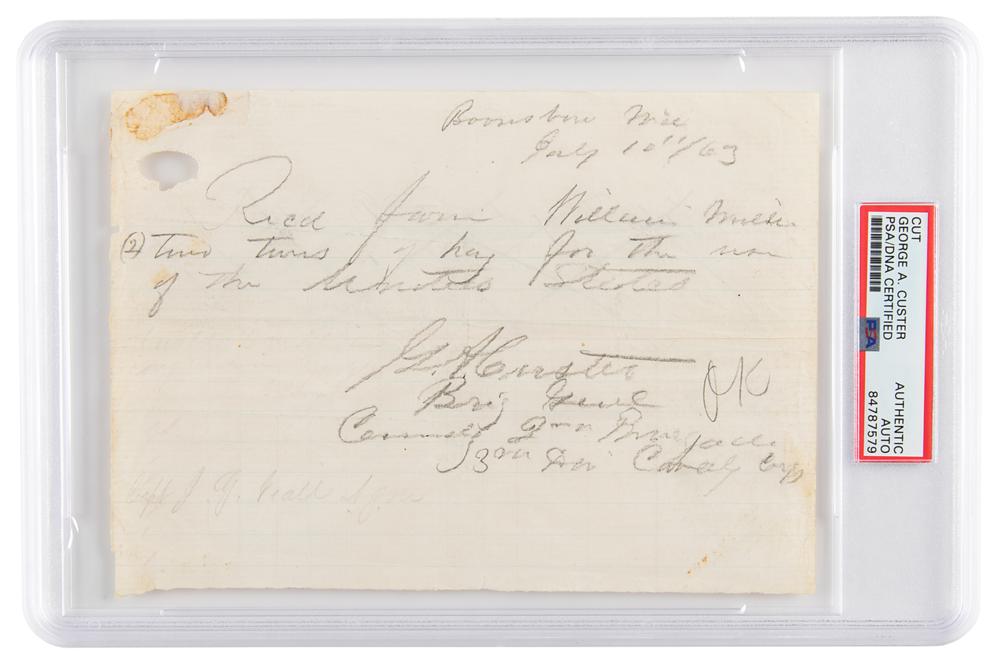 Boonsboro Md
July 10"/63
Recd from William
(2) two tons of hay for the use
of the United States
G. A. Custer
Brig Genl
Comdg 2nd Brigade
3rd Div Cavaly Corps
OK
CUT
GEORGE A. CUSTER
PSA/DNA CERTIFIED
AUTHENTIC
AUTO
84787579
PSA